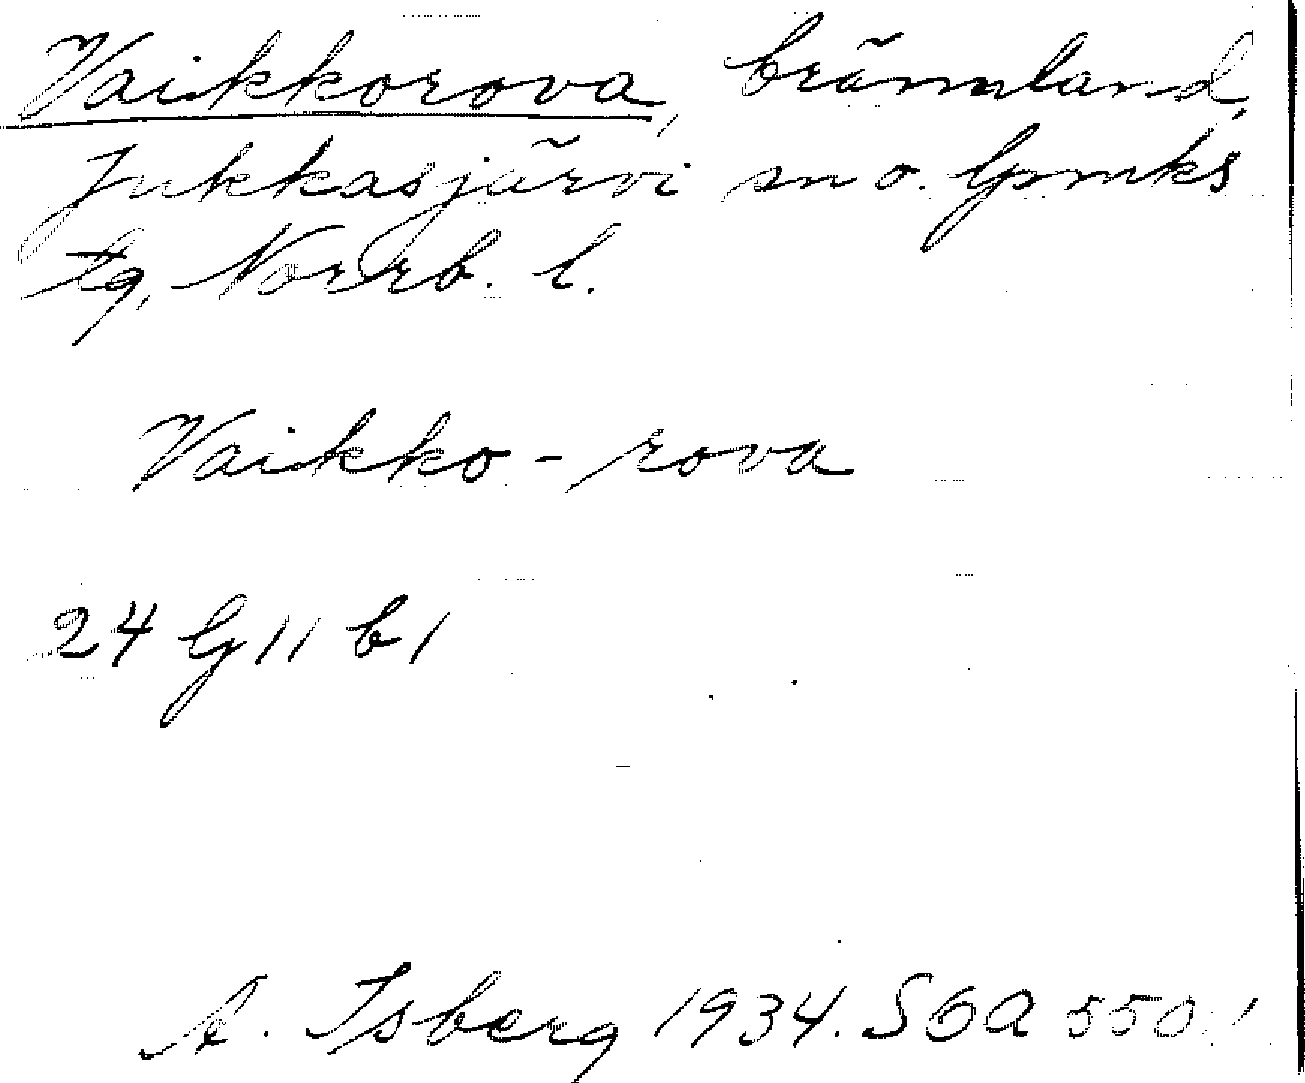 Vaikkorova, brännland,
Jukkasjärvi sn o. lpmks
tg, Norrb. l.
Vaikko - rova
24 G 11 b 1
A. Isberg 1934. SOA 550:1